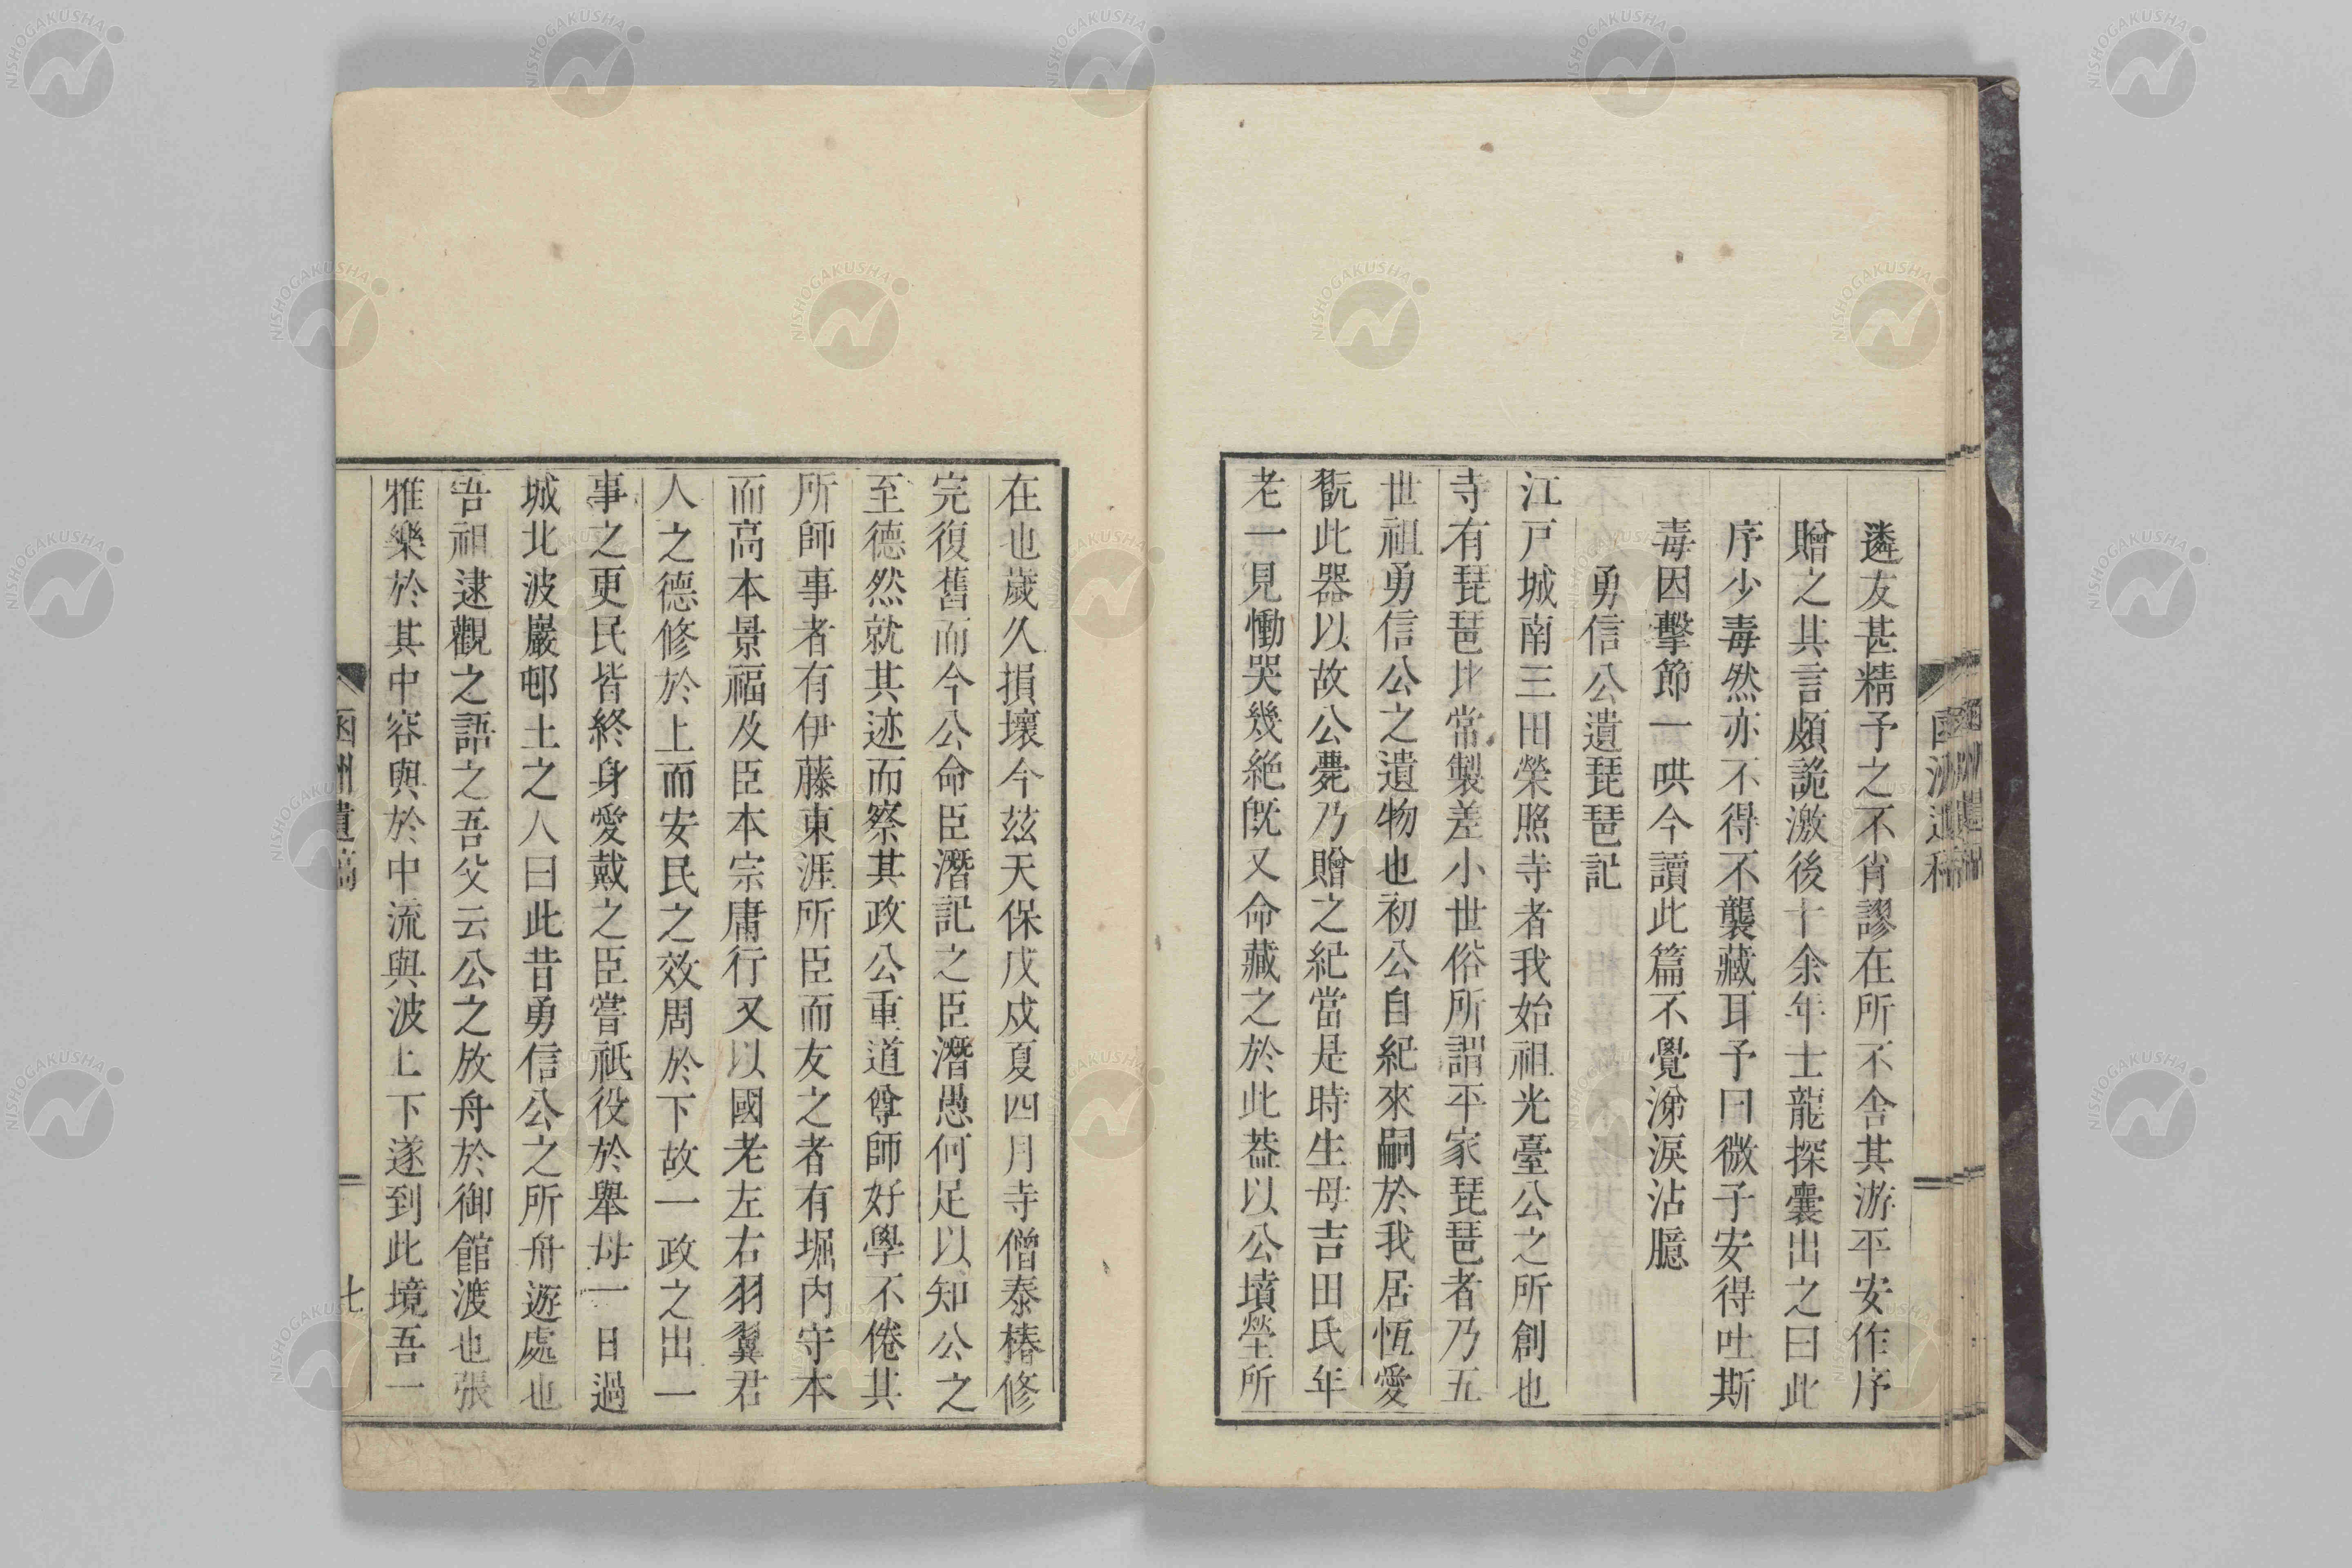 遴友甚精予之不肖謬在所不舍其游平安作序
贈之其言頗詭激後十余年士龍探囊出之曰此
序少毒然亦不得不襲藏耳予曰微子安得吐斯
毒因擊節一哄今讀此篇不覺涕淚沾臆
勇信公遺琵琶記
江戸城南三田榮照寺者我始祖光臺公之所創也
寺有琵琶比常製差小世俗所謂平家琵琶者乃五
世祖勇信公之遺物也初公自紀來嗣於我居恆愛
翫此器以故公薨乃贈之紀當是時生母吉田氏年
老一見慟哭幾絶旣又命藏之於此葢以公墳塋所
在也歲久損壞今茲天保戊戌夏四月寺僧泰椿修
完復舊而今公命臣潛記之臣潛愚何足以知公之
至德然就其迹而察其政公重道尊師好學不倦其
所師事者有伊藤東涯所臣而友之者有堀内守本
而高本景福及臣本宗庸行又以國老左右羽翼君
人之德修於上而安民之效周於下故一政之出一
事之更民皆終身愛戴之臣嘗祇役於舉母一日過
城北波巖邨土之人曰此昔勇信公之所舟遊處也
吾祖逮觀之語之吾父云公之放舟於御館渡也張
雅樂於其中容與於中流與波上下遂到此境吾一
函洲遺稿
七
NISHOGAKUSHA